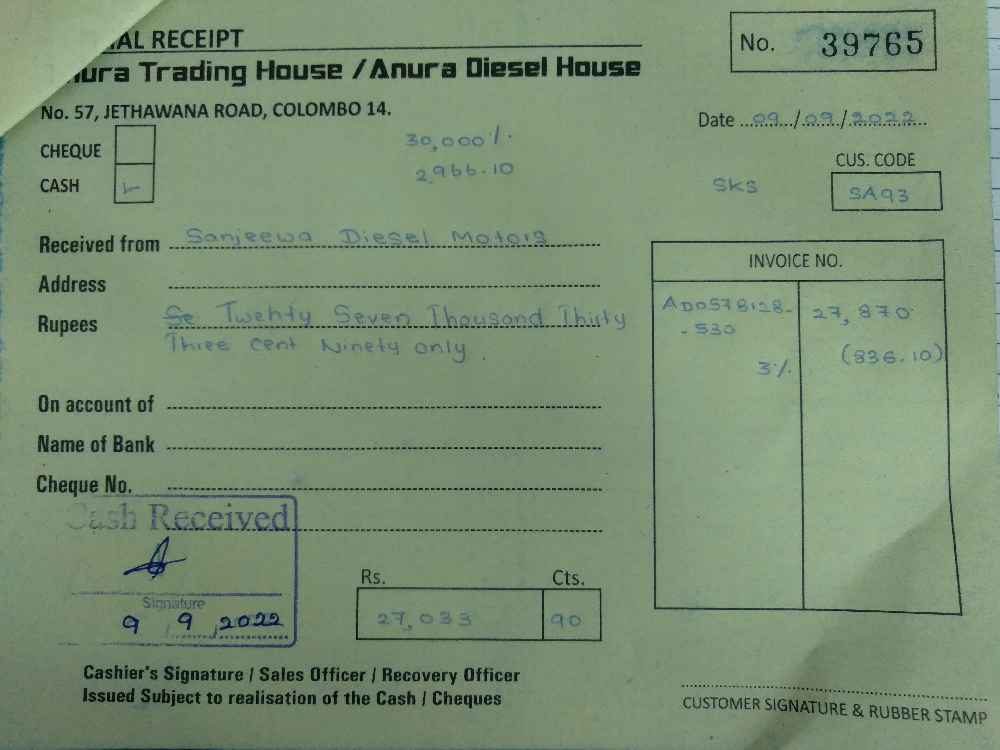 IAL RECEIPT
No. 39765
ura Trading House / Anura Diesel House
No. 57, JETHAWANA ROAD, COLOMBO 14.
Date 09/09/2022
CHEQUE
30,000/.
CUS. CODE
CASH ✓
2,966.10
SKS
SA93
Received from Sanjeewa Diesel Motors
INVOICE NO.
Address
AD0578128- 27,870
Rupees Se Twenty Seven Thousand Thirty
-530
Three cent Ninety only.
3% (836.10)
On account of
Name of Bank
Cheque No.
Cash Received
Rs. Cts.
Signature
27,033 90
9 9 2022
Cashier's Signature / Sales Officer / Recovery Officer
Issued Subject to realisation of the Cash / Cheques
CUSTOMER SIGNATURE & RUBBER STAMP